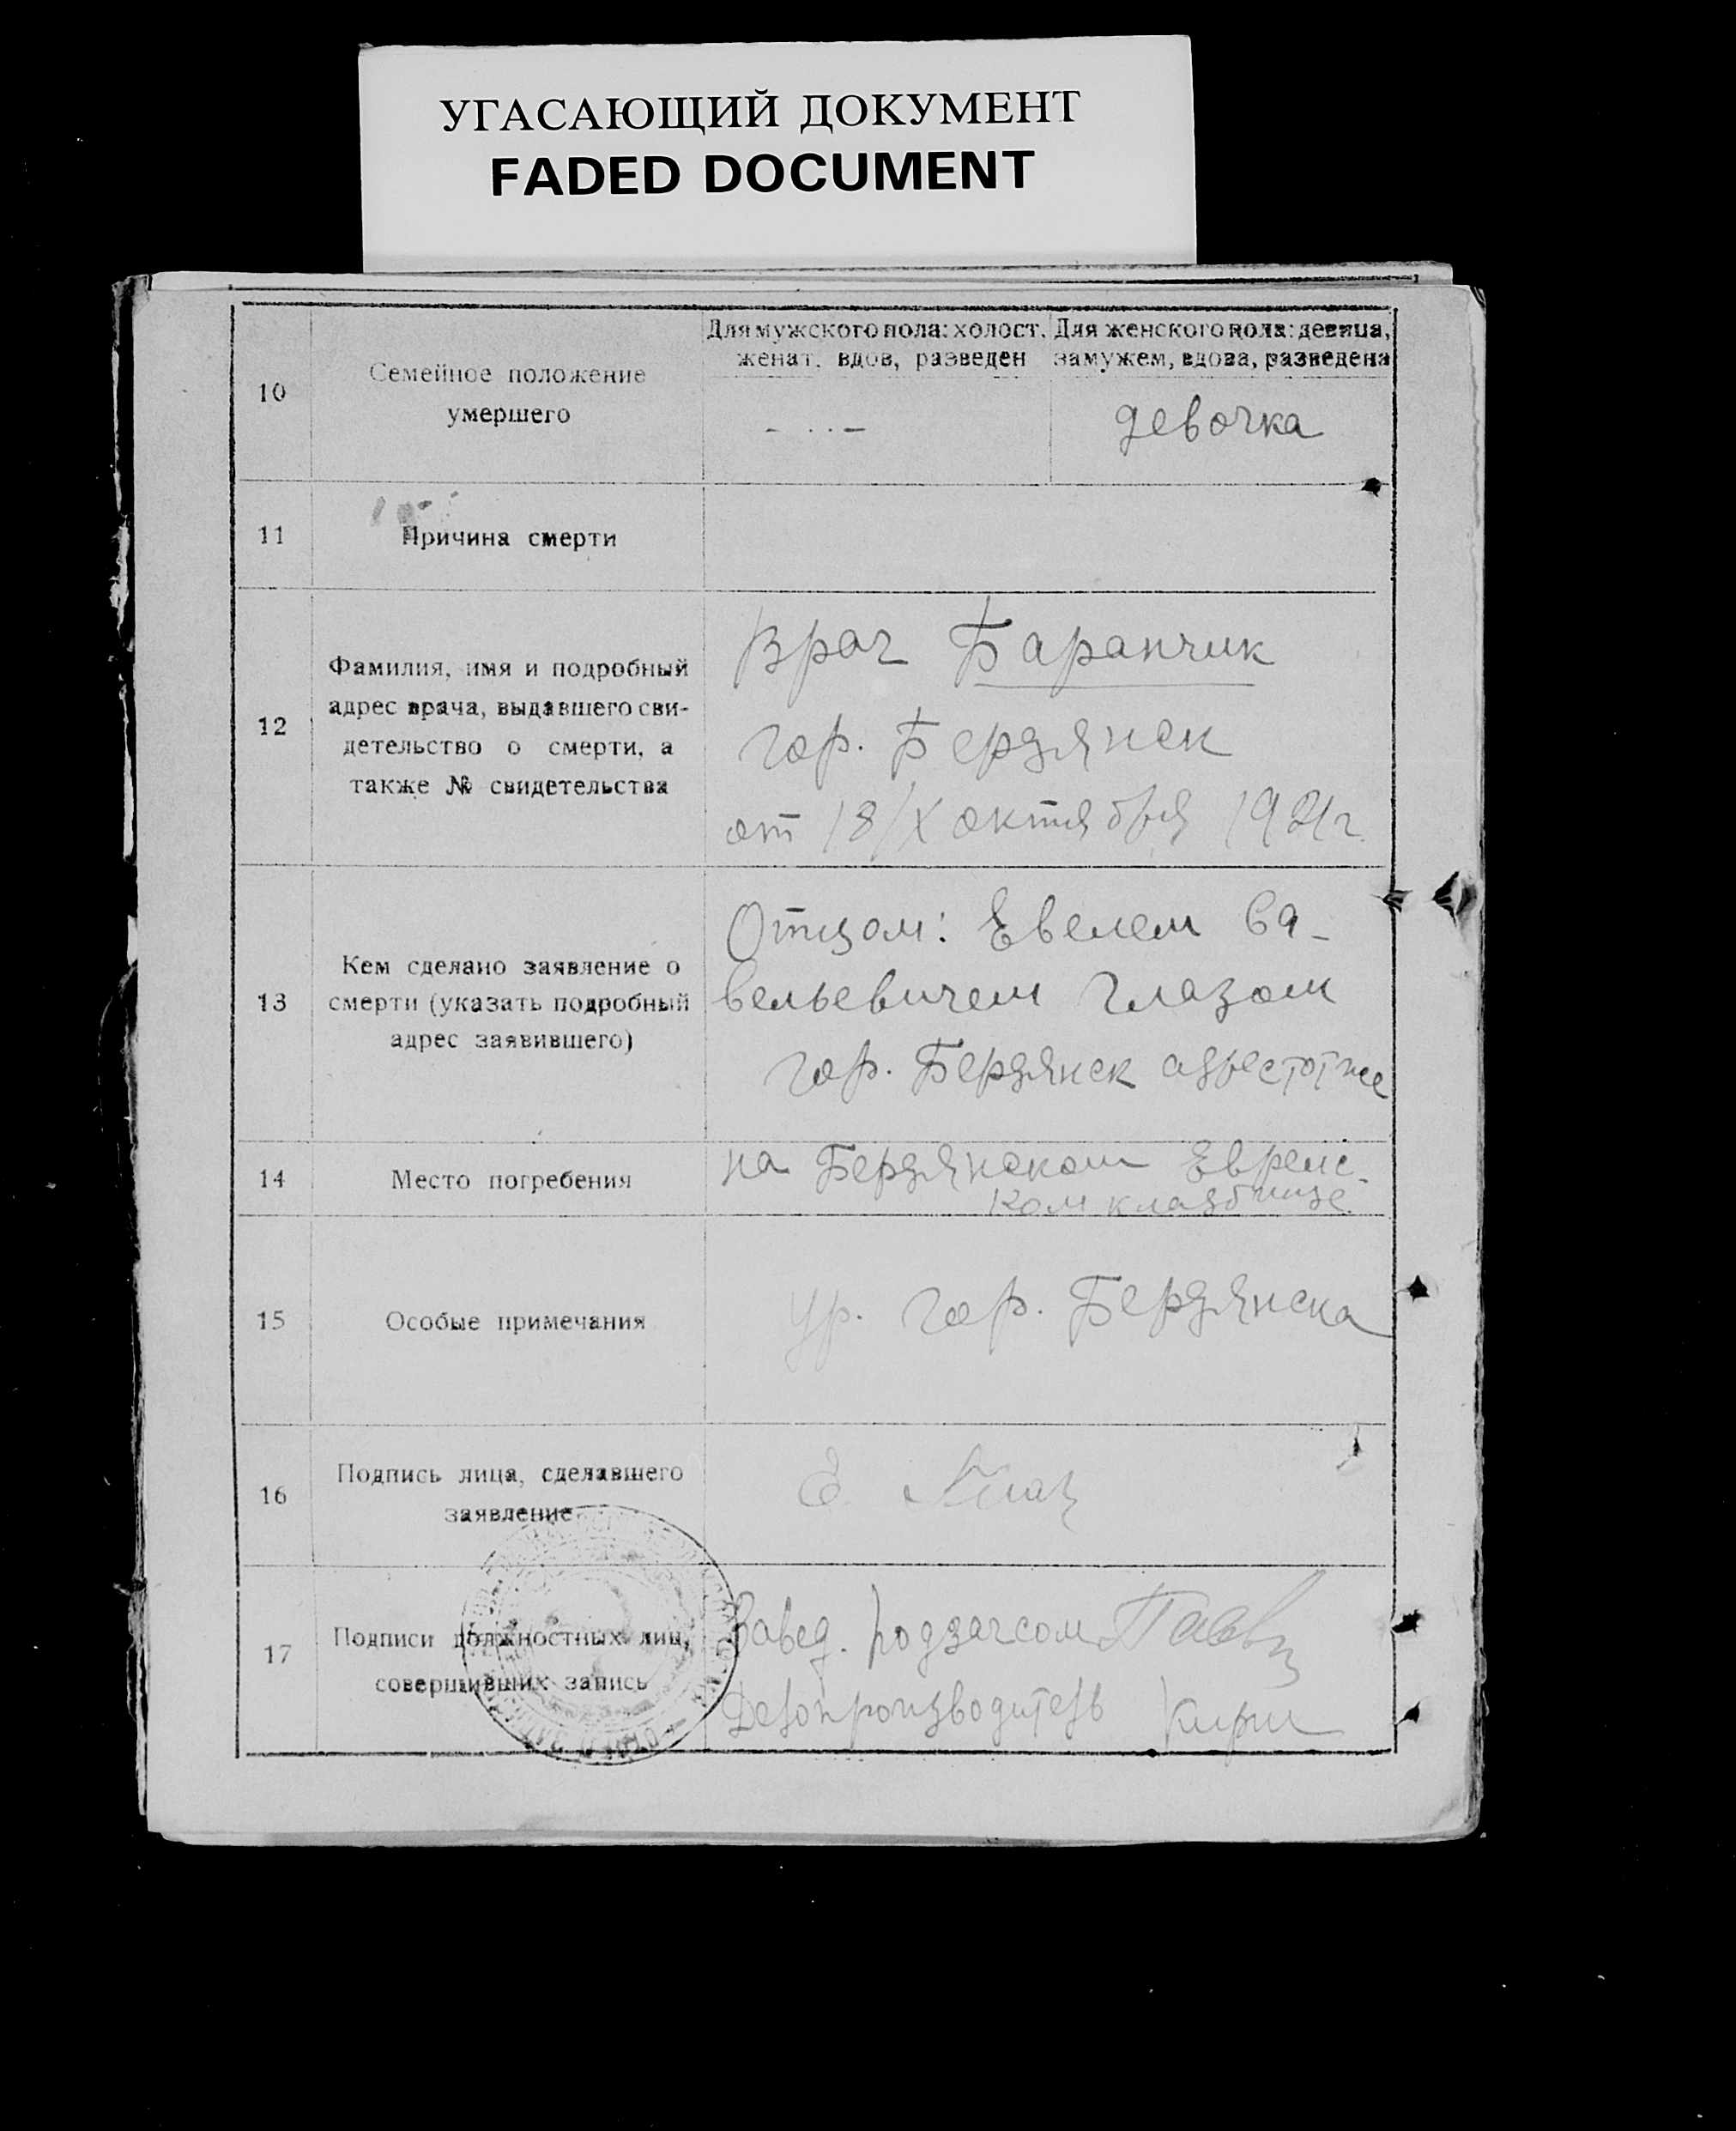 УГАСАЮЩИЙ ДОКУМЕНТ
FADED DOCUMENT
10
Семейное положение
умершего
Для мужского пола: холост,
женат, вдов, разведен
Для женского пола: девица,
замужем, вдова, разведена
девочка
11
Причина смерти
12
Фамилия, имя и подробный
адрес врача, выдавшего сви-
детельство о смерти, а
также № свидетельства
Врач Баранчик
гор. Бердянск
от 18/X октября 1921 г.
13
Кем сделано заявление о
смерти (указать подробный
адрес заявившего)
Отцом: Евелем Са-
вельевичем Глазом
гор. Бердянск адрес тот же
14
Место погребения
на Бердянском Еврейс-
ком кладбище
15
Особые примечания
ур. гор. Бердянска
16
Подпись лица, сделавшего
заявление
Е. Глаз
17
Подписи должностных лиц,
совершивших запись
Завед. подзагсом
Делопроизводитель